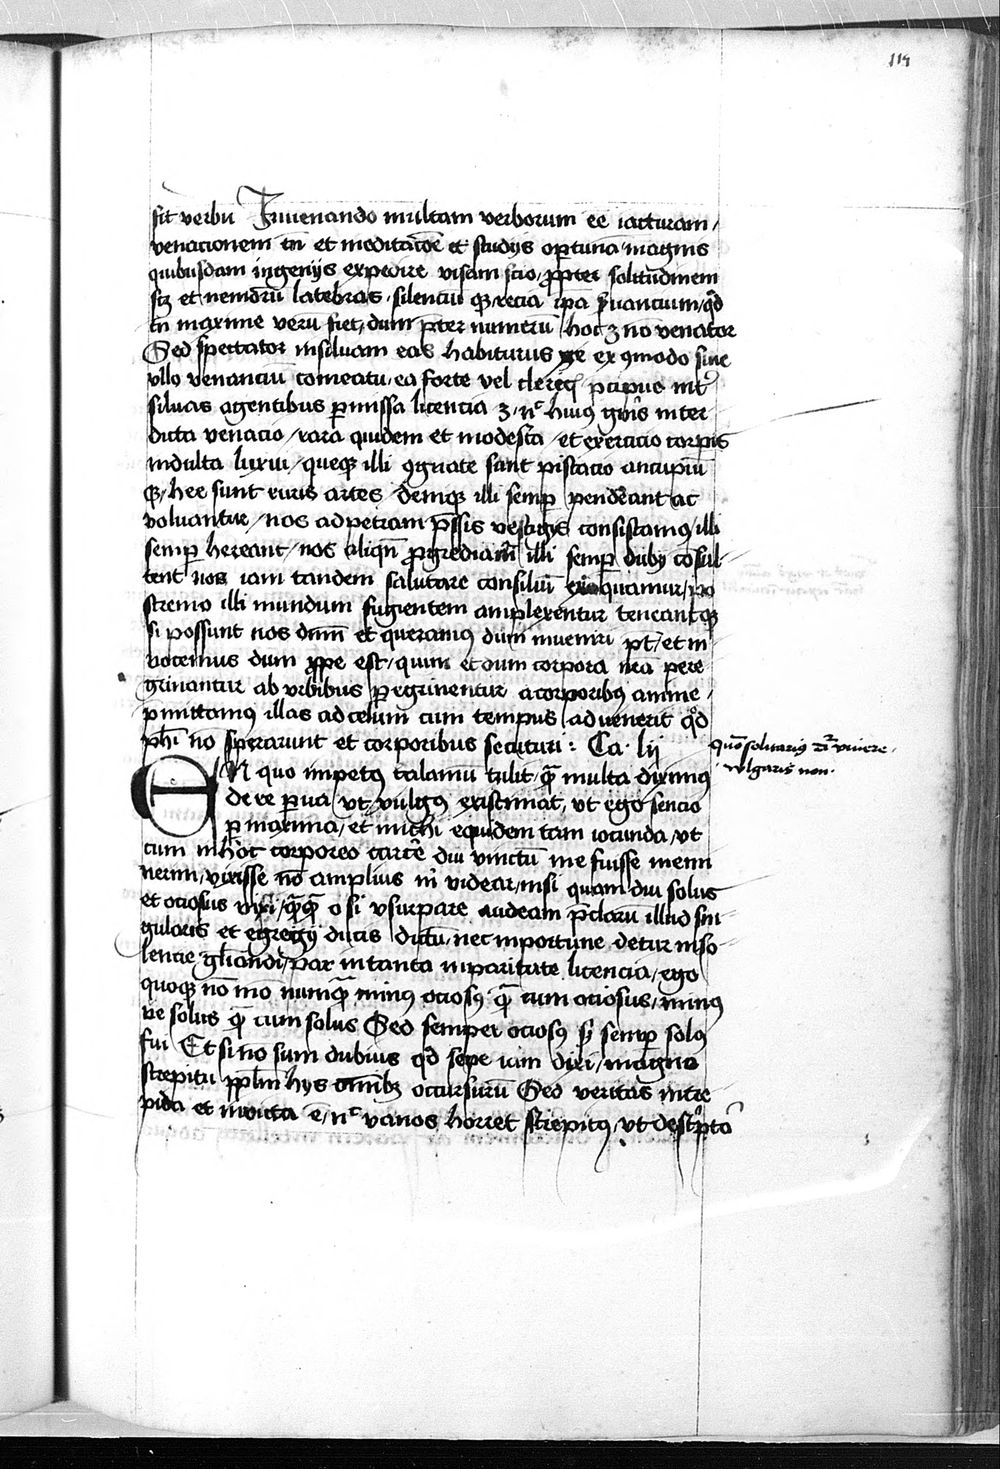 119
sit verbū Inuenando multam verborum ēē iacturam /
venacionem tn̄ et meditacōē et studijs oportunā magnis
quibusdam ingenijs expedire visam scio / ꝓpter solitudinem
scꝫ et nemorū latebras . silenciū ꝙ recia ip̄a seruancium / qd̄
tn̄ maxime verū fiet / dum p̄ter numerū hoc ꝫ nō venator
Sed spectator insiluam eas habiturus ex ꝯmodo sine
vllo venanciū comeatu / ea forte vel p̄cipue int̄
siluas agentibus ꝑmissa licencia ꝫ / nc̄ huiꝰ gn̄is inter
dicta venacio / rara quidem et modesta / et exercicio corpīs
indulta luxui / queqꝫ illi ꝯgnate sunt piscacio aucupiū
qꝫ / hee sunt ruris artes / deniqꝫ illi semꝑ pendeant ac
voluantur / nos ad petram p̄ssis vestigijs consistamꝰ / illi
semꝑ hereant / nos aliqn̄ ꝓgrediamr̄ illi semꝑ dubij consul-
tent nos iam tandem salutare consiliū exequamur / po
stremo illi mundum fugientem amplexentur teneantqꝫ
si possunt nos dn̄m et queramꝰ dum inueniri pt̄ / et in
uocemus dum ꝓpe est / quin et dum corpora nr̄a pere
grinantur ab vrbibus ꝑegrinentur a corporibꝰ anime /
p̄mittamꝰ illas ad celum cum tempus aduenerit qd̄
ph̄i nō sperarunt et corporibus secuturi : Ca . lij
quō solitariꝰ dr̄ viuere .
vulgaris non .
EN quo impetꝰ calamū tulit / ꝙ̄ multa diximꝰ
de re ꝑua / vt vulgꝰ existimat / vt ego sencio
ꝑ maxima / et michi equidem tam iocunda / vt
cum in hoc corporeo carcē diu vinctū me fuisse memi
nerim / vixisse nō amplius m̄ videar / nisi quam diu solus
et ociosus vixi / ꝙ̄ꝙ̄ o si vsurpare audeam p̄clarū illud sin-
gularis et egregij ducis dictū / nec inportune detur inso-
lencie gl̄iandi / par in tanta inparitate licencia / ego
quoqꝫ nō mō numꝙ̄ minꝰ ociosꝰ ꝙ̄ cum ociosus / minꝰ
ve solus ꝙ̄ cum solus Sed semper ociosꝰ sꝫ semꝑ solꝰ
fui Et si nō sum dubius qd̄ sepe iam dixi / magno
strepitu ppl̄m hijs omībꝫ occursurū Sed veritas intre
pida et inuicta ē / nc̄ vanos horret strepitꝰ / vt descripto